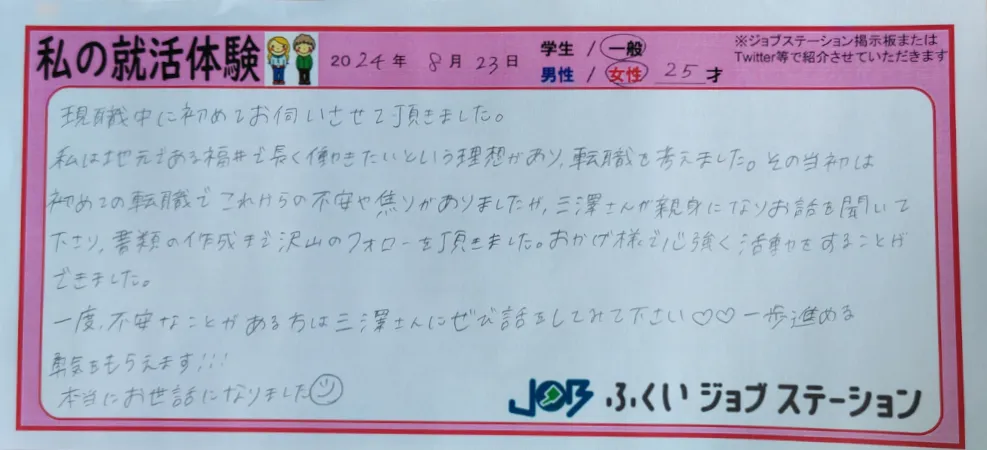 私の就活体験
2024年 8月 23日
学生 / 一般
男性 / 女性 25才
※ジョブステーション掲示板または
Twitter等で紹介させていただきます
現職中に初めてお伺いさせて頂きました。
私は地元である福井で長く働きたいという理想があり、転職を考えました。その当初は
初めての転職でこれからの不安や焦りがありましたが、三澤さんが親身になりお話を聞いて
下さり、書類の作成まで沢山のフォローを頂きました。おかげ様で心強く活動をすることが
できました。
一度、不安なことがある方は三澤さんにぜひ話をしてみて下さい♡♡一歩進める
勇気をもらえます!!!
本当にお世話になりましたツ
JOB ふくい ジョブ ステーション